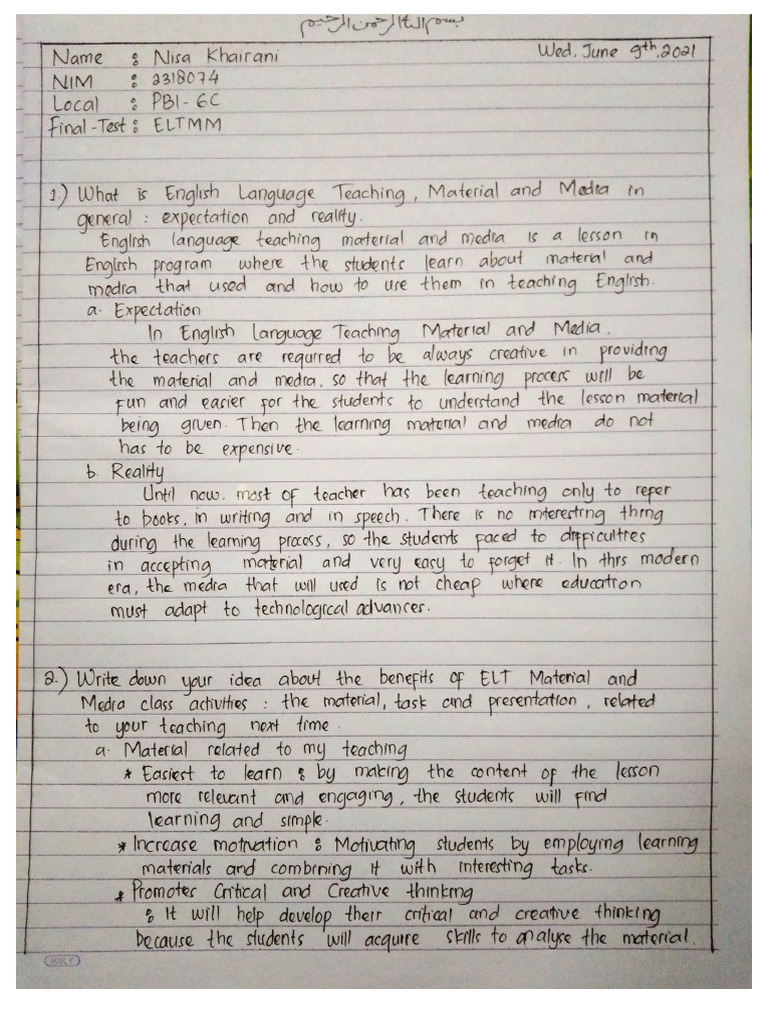 بسم الله الرحمن الرحيم
Name : Nisa Khairani
Wed, June 9th, 2021
NIM : 2318074
Local : PBI-6C
Final-Test : ELTMM
1.) What is English Language Teaching, Material and Media in
general : expectation and reality.
English language teaching material and media is a lesson in
English program where the students learn about material and
media that used and how to use them in teaching English.
a. Expectation
In English Language Teaching Material and Media,
the teachers are required to be always creative in providing
the material and media, so that the learning process will be
fun and easier for the students to understand the lesson material
being given. Then the learning material and media do not
has to be expensive.
b. Reality
Until now, most of teacher has been teaching only to refer
to books, in writing and in speech. There is no interesting thing
during the learning process, so the students faced to difficulties
in accepting material and very easy to forget it. In this modern
era, the media that will used is not cheap where education
must adapt to technological advances.
2.) Write down your idea about the benefits of ELT Material and
Media class activities : the material, task and presentation, related
to your teaching next time.
a. Material related to my teaching
* Easiest to learn : by making the content of the lesson
more relevant and engaging, the students will find
learning and simple.
* Increase motivation : Motivating students by employing learning
materials and combining it with interesting tasks.
* Promotes Critical and Creative thinking
: It will help develop their critical and creative thinking
because the students will acquire skills to analyse the material.
KIKY